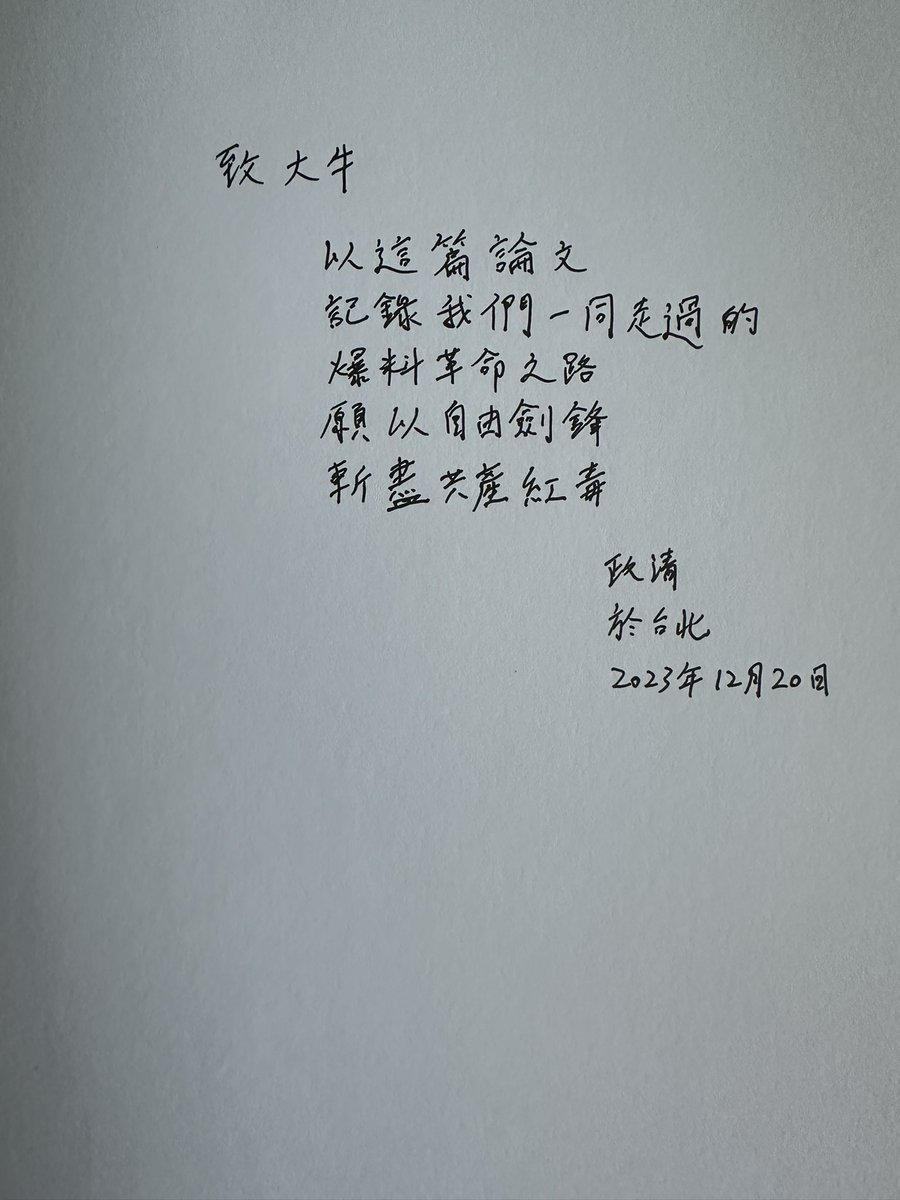 致大牛
以這篇論文
記錄我們一同走過的
爆料革命之路
願以自由劍鋒
斬盡共產紅毒
政清
於台北
2023年12月20日